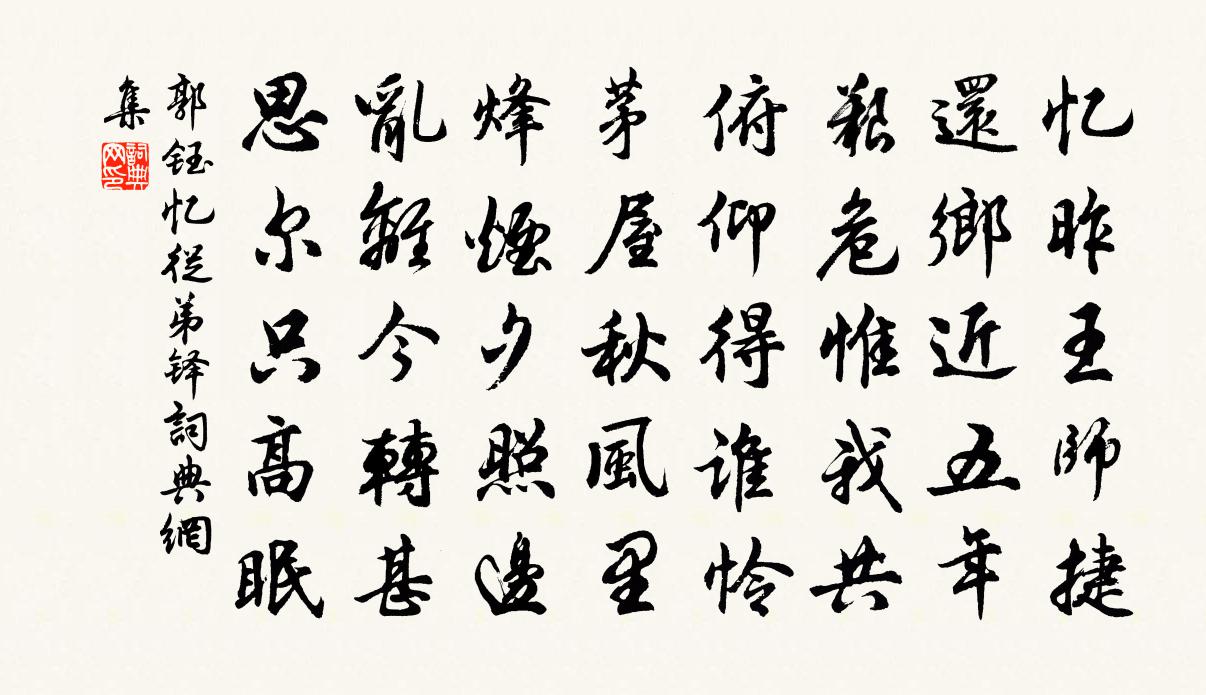 忆昨王師捷
還鄉近五年
艱危惟我共
俯仰得谁怜
茅屋秋風里
烽煙夕照邊
亂離今轉甚
思尔只高眠
郭钰忆從弟铎詞典網
集
詞典网印